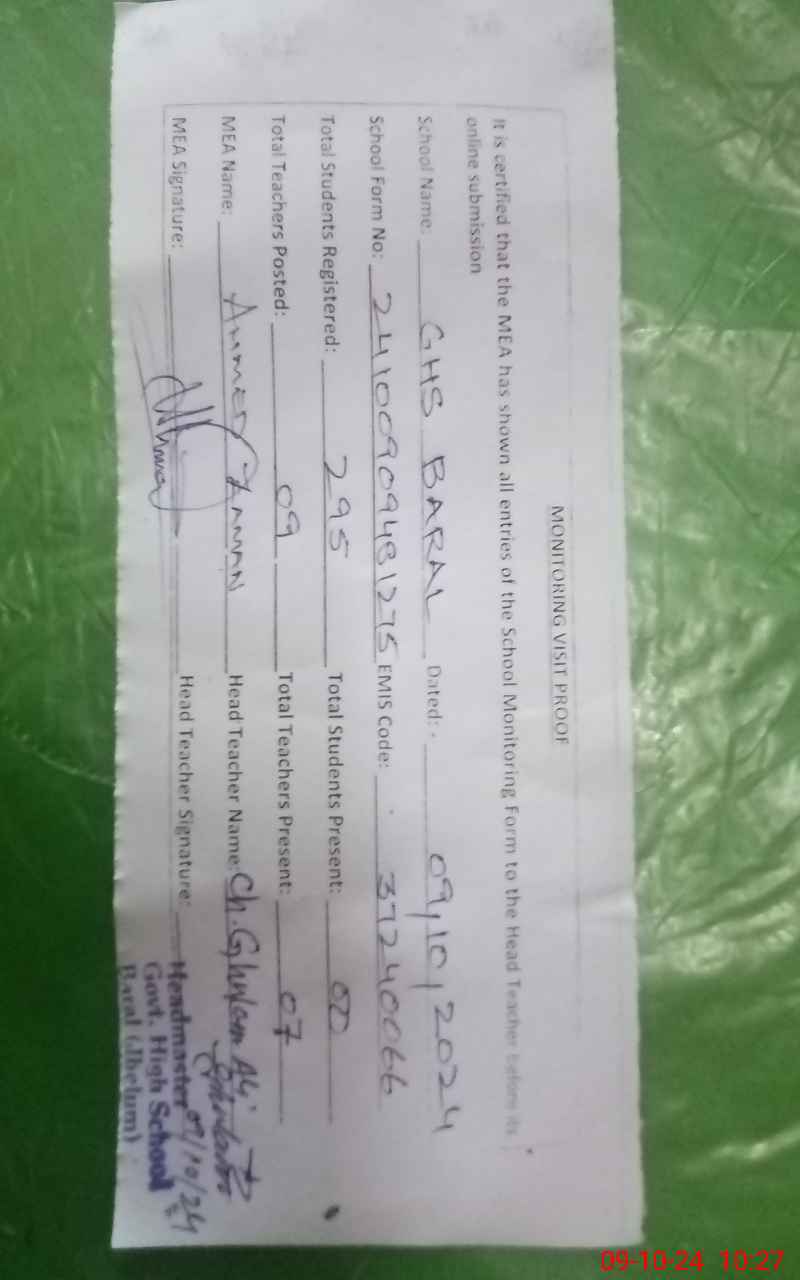 MONITORING VISIT PROOF
It is certified that the MEA has shown all entries of the School Monitoring Form to the Head Teacher before its
online submission
School Name: GHS BARAL Dated: 09/10/2024
School Form No: 24100909481275 EMIS Code: 37240066
Total Students Registered: 295 Total Students Present: 00
Total Teachers Posted: 09 Total Teachers Present: 07
MEA Name: AHMED ZAMAN Head Teacher Name: Ch. Ghulam Ali
MEA Signature: Head Teacher Signature:
Headmaster 09/10/24
Govt. High School
Baral (Jhelum)
09-10-24 10:27